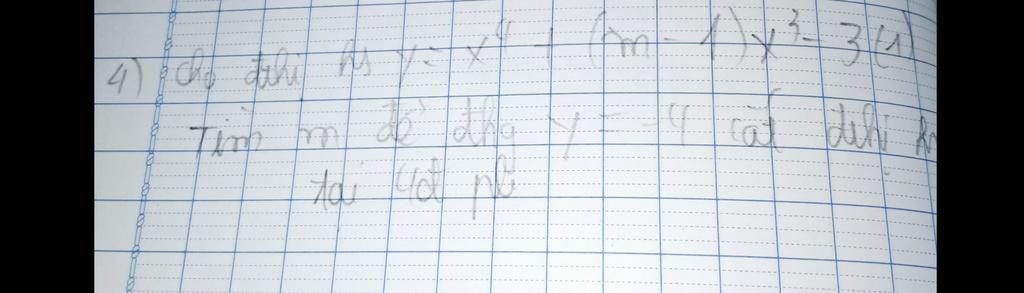 4) Cho đthị hs y = x⁴ + (m - 1)x³ - 3 (1)
Tìm m để đthg y = -4 cắt đthị hs
tại 4đ pb